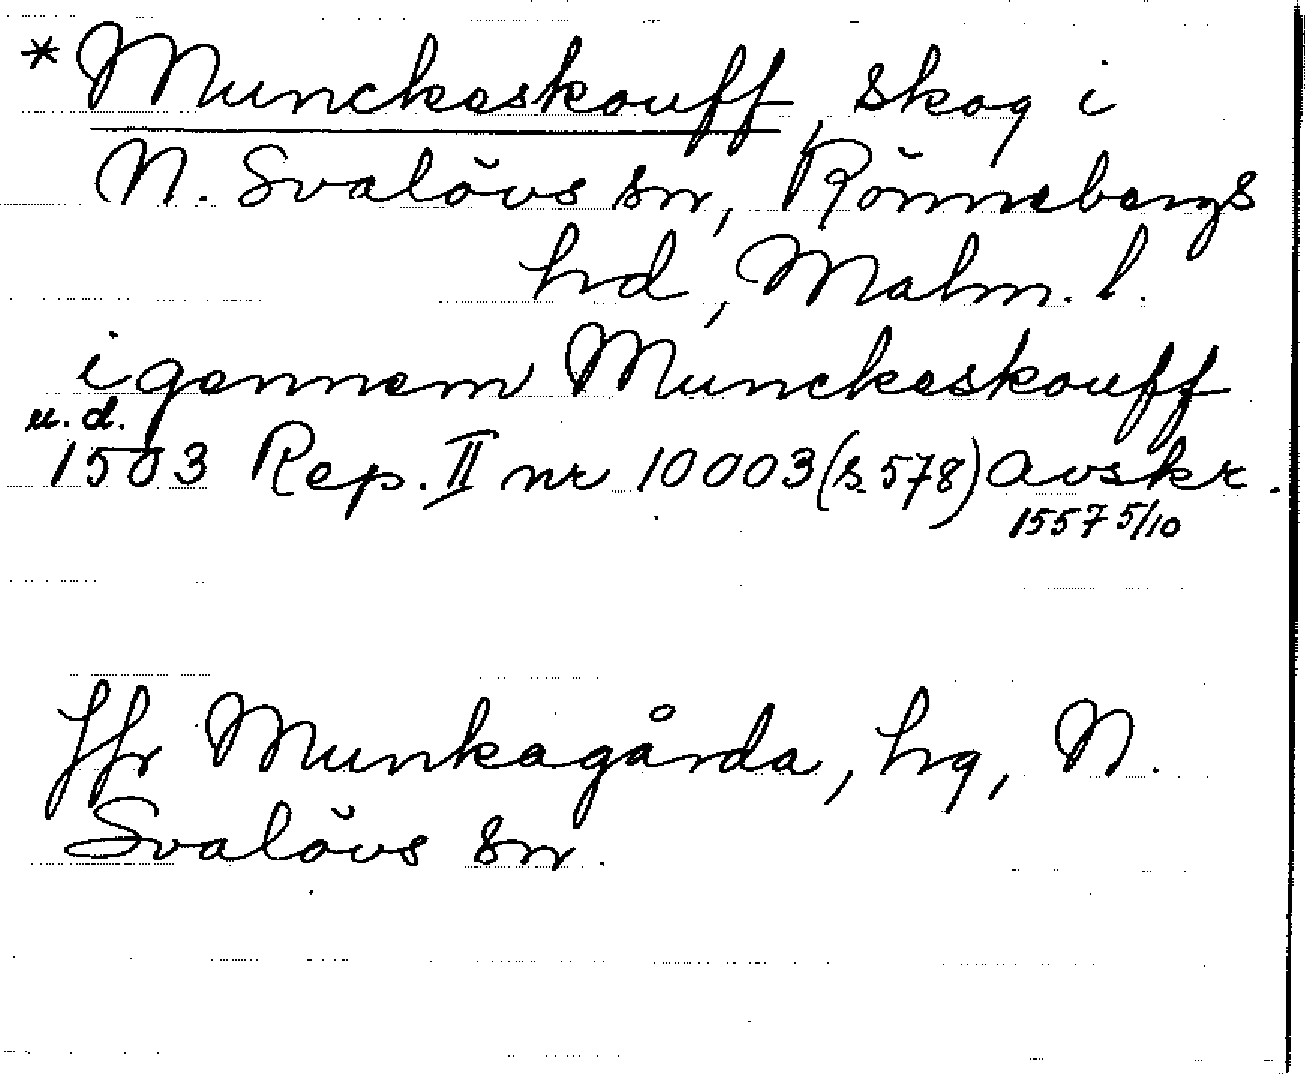 * Munckeskouff, skog i
N. Svalövs sn, Rönnebergs
hd, Malm. l.
igennem Munckeskouff
u.d.
1503 Rep. II nr 10003 (s. 578) avskr.
1557 5/10
Jfr Munkagårda, hg, N.
Svalövs sn.